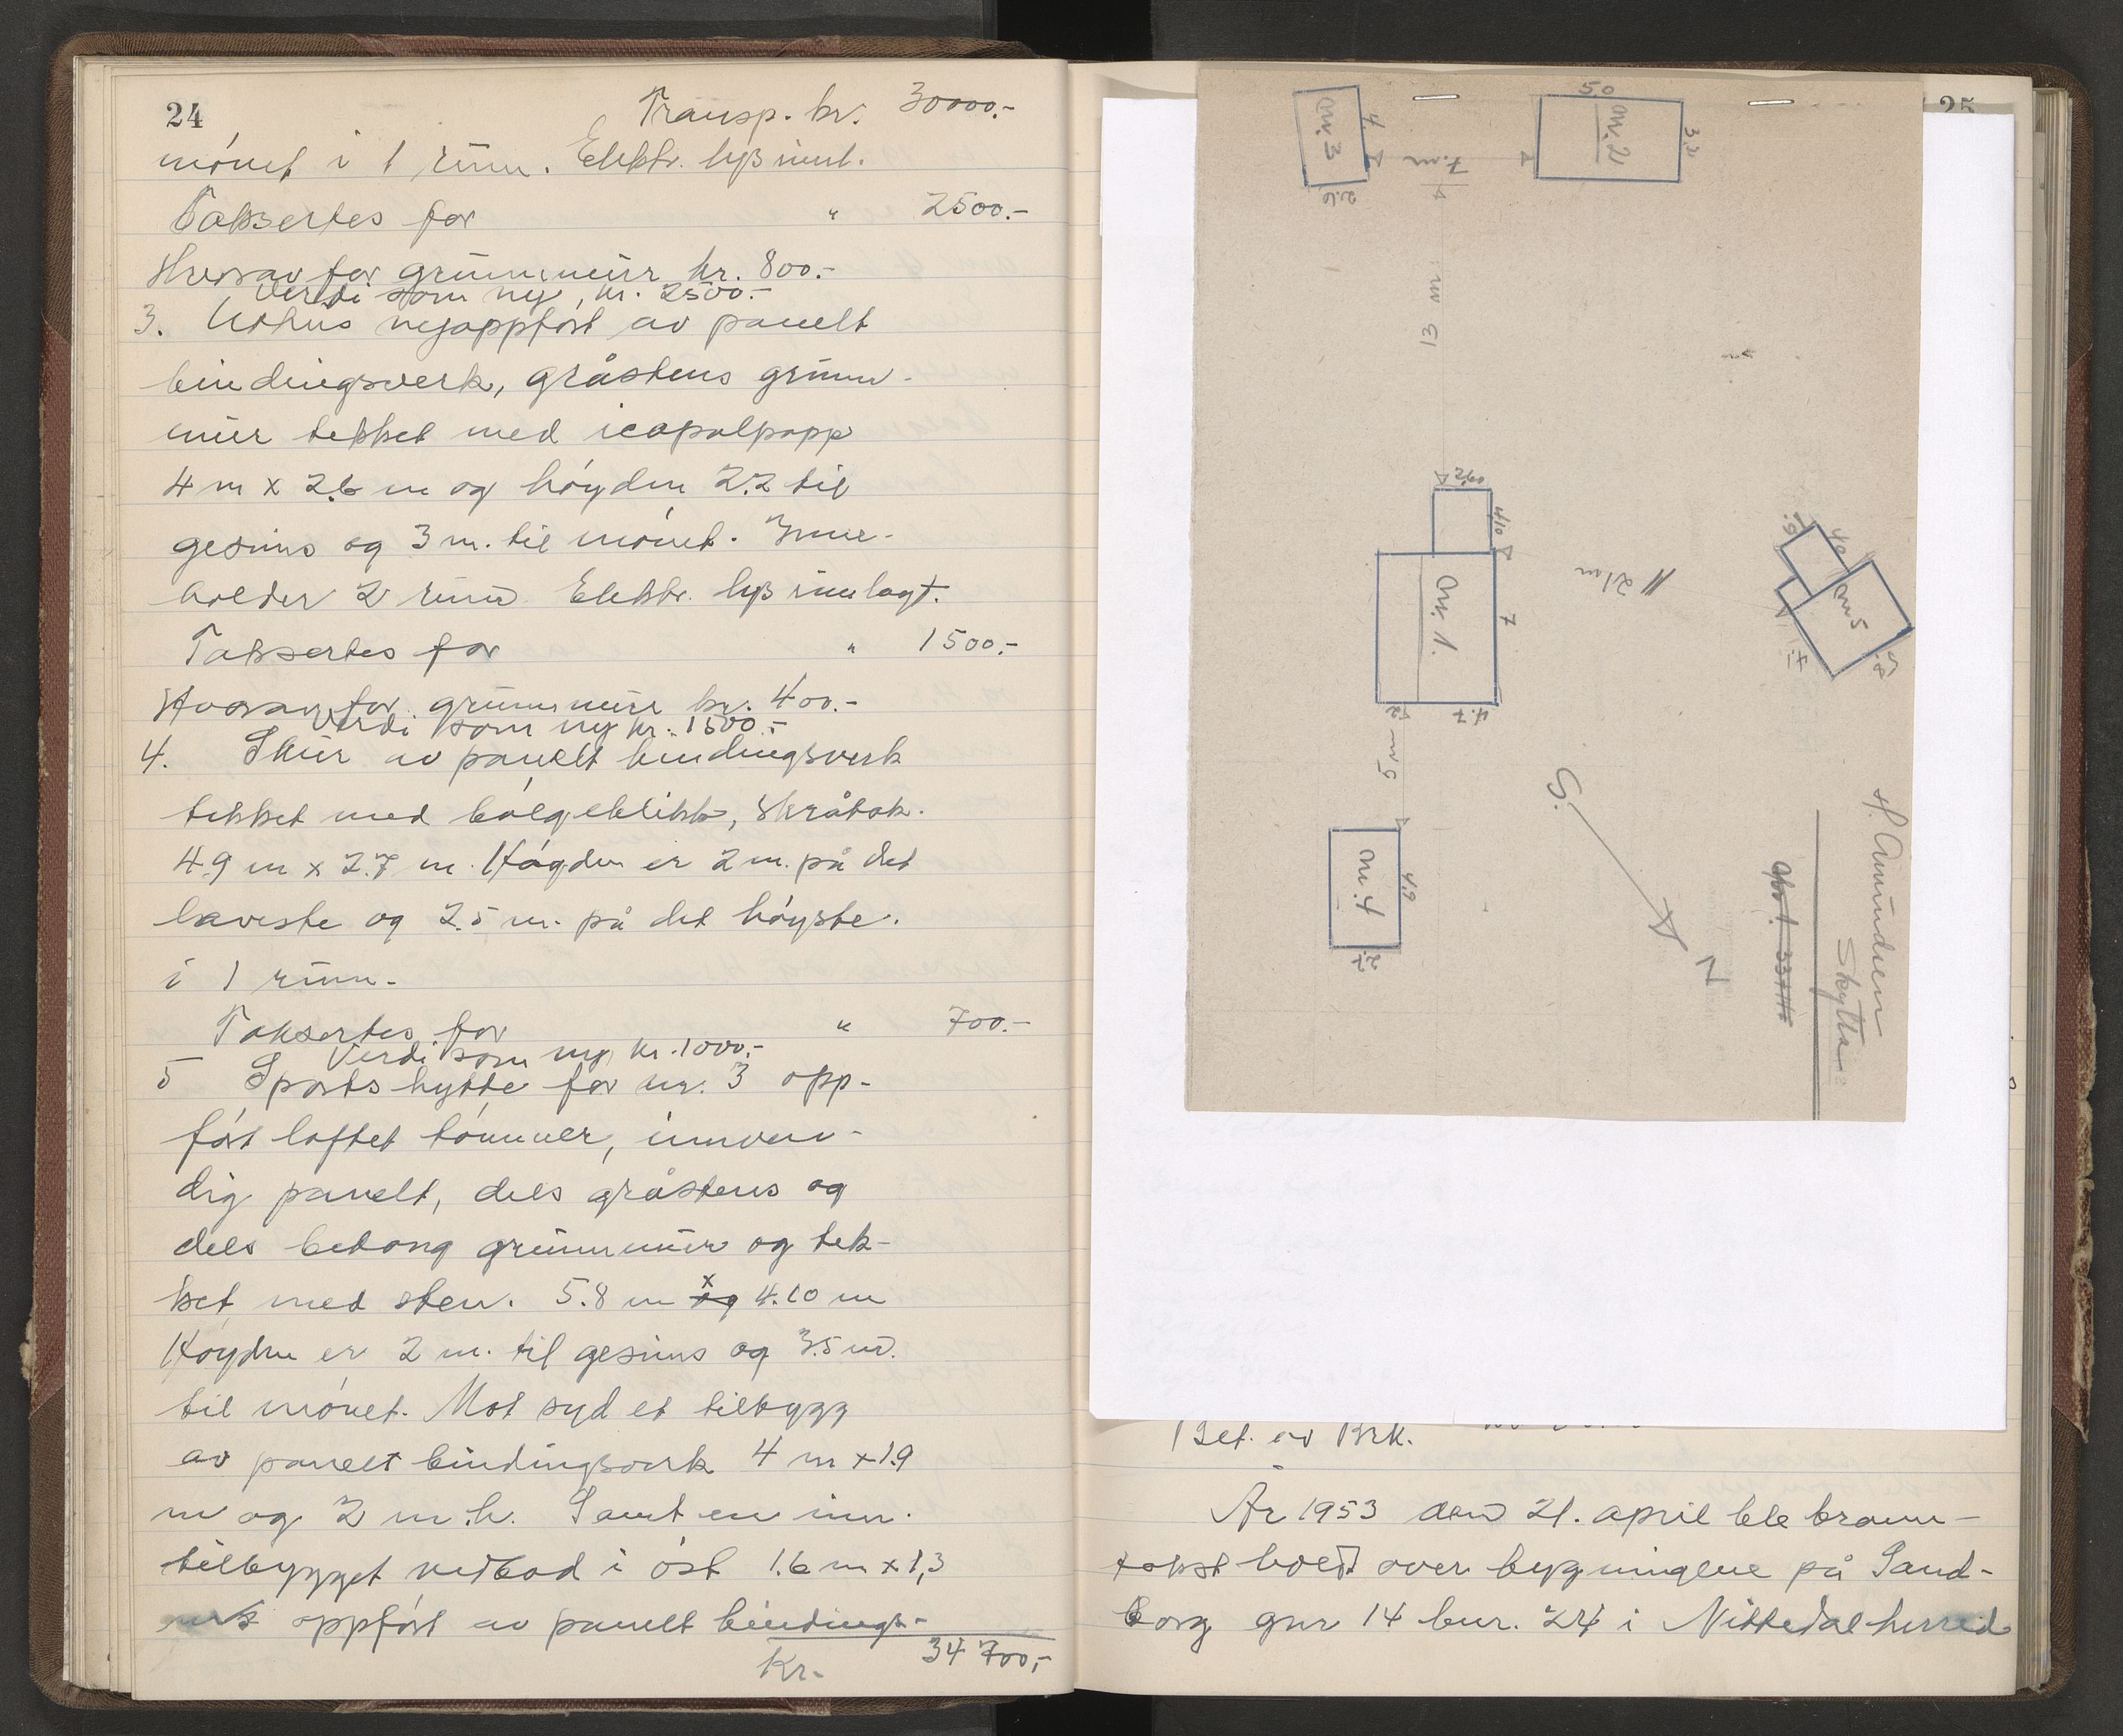 24
Transp. kr. 30000.-
mönet i 1 rum. Elektr. lys innl.
Taksertes for " 2500.-
Hvorav for grunnmur kr. 800.-
Verdi som ny, kr. 2500.-
3. Uthus nyoppført av panelt
bindingsverk, gråstens grunn-
mur tekket med icopalpapp
4 m x 2.6 m og höyden 2.2 til
gesims og 3 m. til mönet. Inne-
holder 2 rum Elektr. lys innlagt.
Taksertes for " 1500.-
Hvorav for grunnmur kr. 400.-
Verdi som ny kr. 1500.-
4. Skur av panelt bindingsverk
tekket med bölgeblikk, skråtak.
4.9 m x 2.7 m. Höyden er 2 m. på det
laveste og 2.5 m. på det höyste.
i 1 rum.
Taksertes for " 700.-
Verdi som ny kr. 1000.-
5 Sportshytte for nr. 3 opp-
fört laftet tömmer, innven-
dig panelt, dels gråstens og
dels betong grunnmur og tek-
ket med sten. 5.8 m x og 4.10 m
Höyden er 2 m. til gesims og 3.5 m.
til mönet. Mot syd et tilbygg
av panelt bindingsverk 4 m x 1.9
m og 2 m.h. Samt en inn-
tilbygget vedbod i öst 1.6 m x 1,3
oppfört av panelt bindings-
Kr. 34 700,-
25
nr. 3
4.
2.6
7. m
5.0
nr. 2
3.2
13 m
4.10
nr. 1.
7
4.7
2
5 m
nr. 4
4.9
2.7
21 m
nr 5
4.0
1.9
4.1
5.8
S.
N
H. Amundsen
Skytta
Bet. av Brk.
År 1953 den 21. april ble brann-
takst holdt over bygningene på Sand-
borg gnr 14 bnr. 24 i Nittedal herred